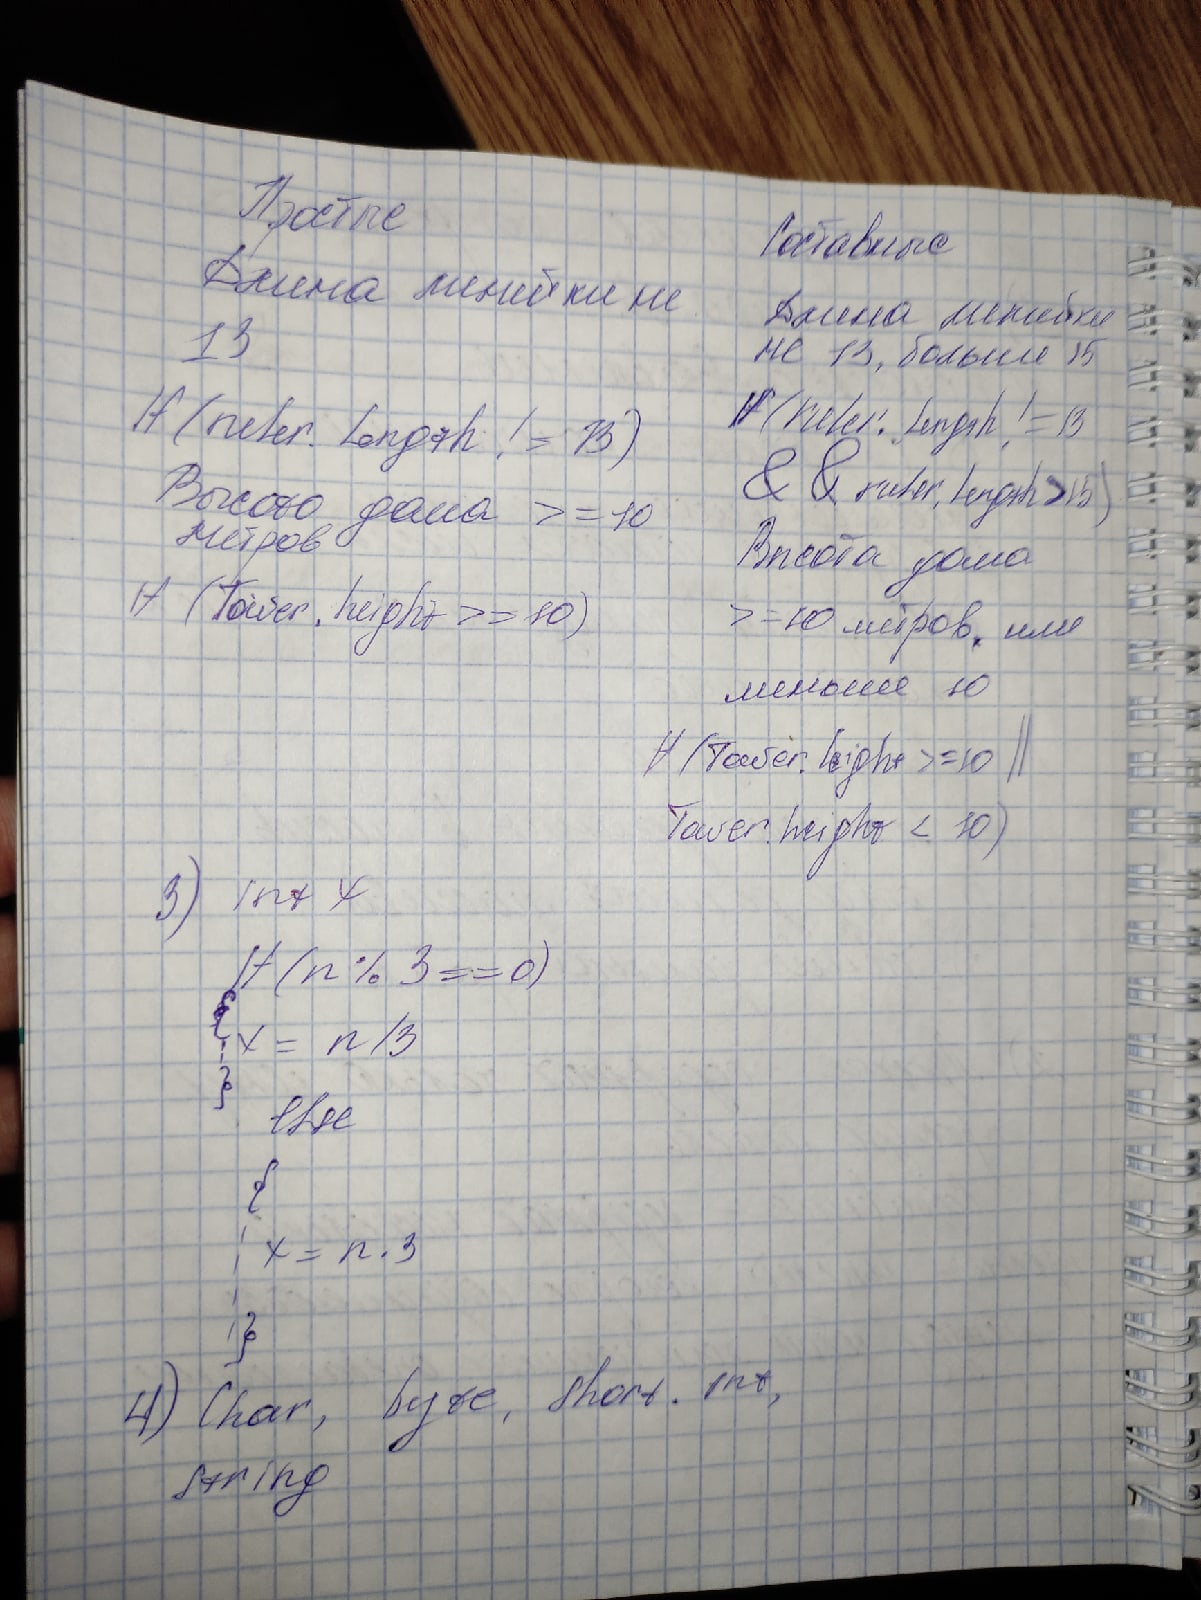 Простые
Длина линейки не
13
If (ruler. Length != 13)
Высота дома >=10
метров
If (Tower. height >= 10)
Составные
Длина линейки
не 13, больше 15
If (ruler. Length != 13
&& ruler. Length > 15)
Высота дома
>=10 метров, или
меньше 10
If (Tower. height >=10 ||
Tower. height < 10)
3) int x
If (n % 3 == 0)
{
x = n/3
}
else
{
x = n · 3
}
4) Char, byte, short. int,
string